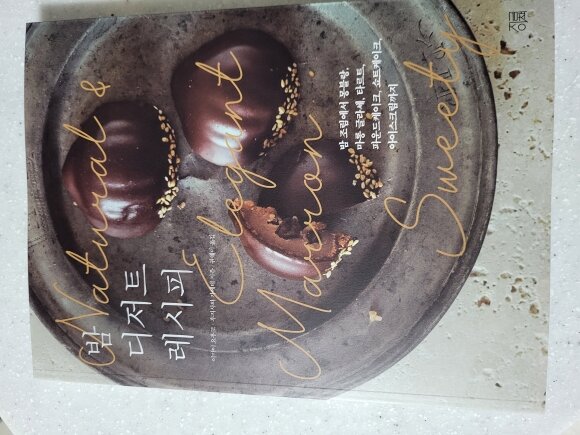 Natural &
Elegant
Marron
Sweetly
밤
디저트
레시피
밤 조림에서 몽블랑,
마롱 글라세, 타르트,
파운드케이크, 쇼트케이크,
아이스크림까지